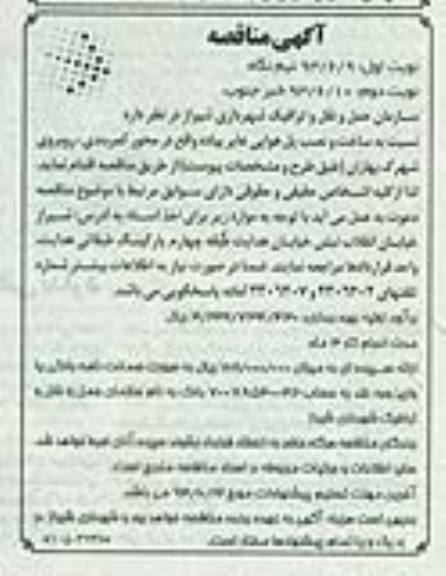 آگهی مناقصه
نوبت اول: ۹۳/۶/۹ نیم نگاه
نوبت دوم: ۹۳/۶/۱۰ خبر جنوب
سازمان حمل و نقل و ترافیک شهرداری شیراز در نظر دارد
نسبت به ساخت و نصب پل هوایی عابر پیاده واقع در محور کمربندی روبروی
شهرک بهاران (طبق طرح و مشخصات پیوست) از طریق مناقصه اقدام نماید.
لذا از کلیه اشخاص حقیقی و حقوقی دارای سوابق مرتبط با موضوع مناقصه
دعوت به عمل می آید با توجه به موارد زیر برای اخذ اسناد به آدرس: شیراز
خیابان انقلاب نبش خیابان هدایت طبقه چهارم پارکینگ طبقاتی هدایت،
واحد قراردادها مراجعه نمایند. ضمنا در صورت نیاز به اطلاعات بیشتر شماره
تلفنهای ۲۳۰۹۳۰۲ و ۲۳۰۹۳۰۷ آماده پاسخگویی می باشد.
برآورد اولیه ریال
مدت انجام کار ۴ ماه
ارائه سپرده ای به میزان ریال به صورت ضمانت نامه بانکی یا
واریز وجه نقد به حساب بانک به نام سازمان حمل و نقل و
ترافیک شهرداری شیراز
برندگان مناقصه هرگاه حاضر به انعقاد قرارداد نشوند سپرده آنان ضبط خواهد شد.
سایر اطلاعات و جزئیات مربوطه در اسناد مناقصه مندرج است.
آخرین مهلت تسلیم پیشنهادات مورخ می باشد
بدیهی است هزینه آگهی به عهده برنده مناقصه خواهد بود و شهرداری شیراز در
رد یک و یا تمام پیشنهادها مختار است.